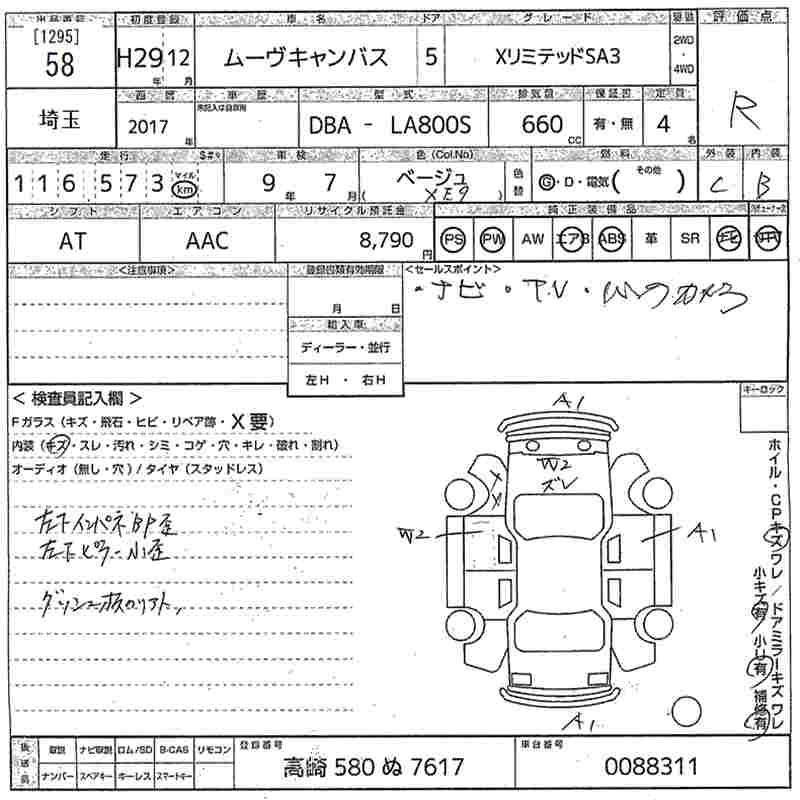 出品番号 初度登録 車名 ドア グレード 駆動 評価点
[1295]
58 H29年 12月 ムーヴキャンバス 5 XリミテッドSA3 2WD・4WD R
西暦 車歴 型式 排気量 保証書 定員
埼玉 2017年 未記入は自家用 DBA - LA800S 660cc 有・無 4名
走行 $#* 車検 色(Col.No) 燃料 外装 内装
116573 マイル km 9年 7月 ベージュ (XE9) 色替 G・D・電気(その他) C B
シフト エアコン リサイクル預託金 純正装備品
AT AAC 8,790円 PS PW AW エアB ABS 革 SR ナビ TV
<注意事項> 登録書類有効期限 <セールスポイント>
月 日 ・ナビ・T.V・バックカメラ
輸入車
ディーラー・並行
左H・右H
<検査員記入欄> キーロック
Fガラス(キズ・飛石・ヒビ・リペア跡・X要)
内装(キズ・スレ・汚れ・シミ・コゲ・穴・キレ・破れ・割れ)
オーディオ(無し・穴)/タイヤ(スタッドレス)
左下インパネBP歪
左下ピラー小歪
A1
W2
ズレ
W2
A1
A1
ホイル・CPキズワレ/ドアミラーキズワレ
小キズ有/小U有/補修有
後送品 取説 ナビ取説 ロム/SD B-CAS リモコン 登録番号 車台番号
ナンバー スペアキー キーレス スマートキー 高崎 580 ぬ 7617 0088311